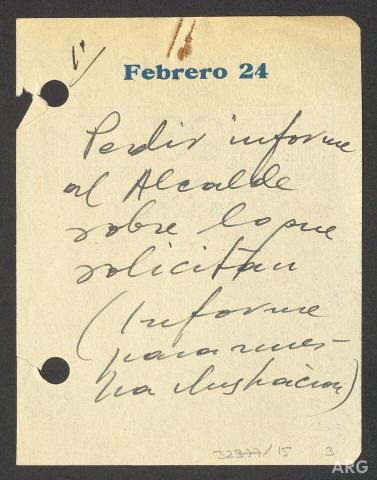 1º
Febrero 24
Pedir informe
al Alcalde
sobre lo que
solicitan
(Informe
para nues-
tra ilustración)
32377/15 3
ARG